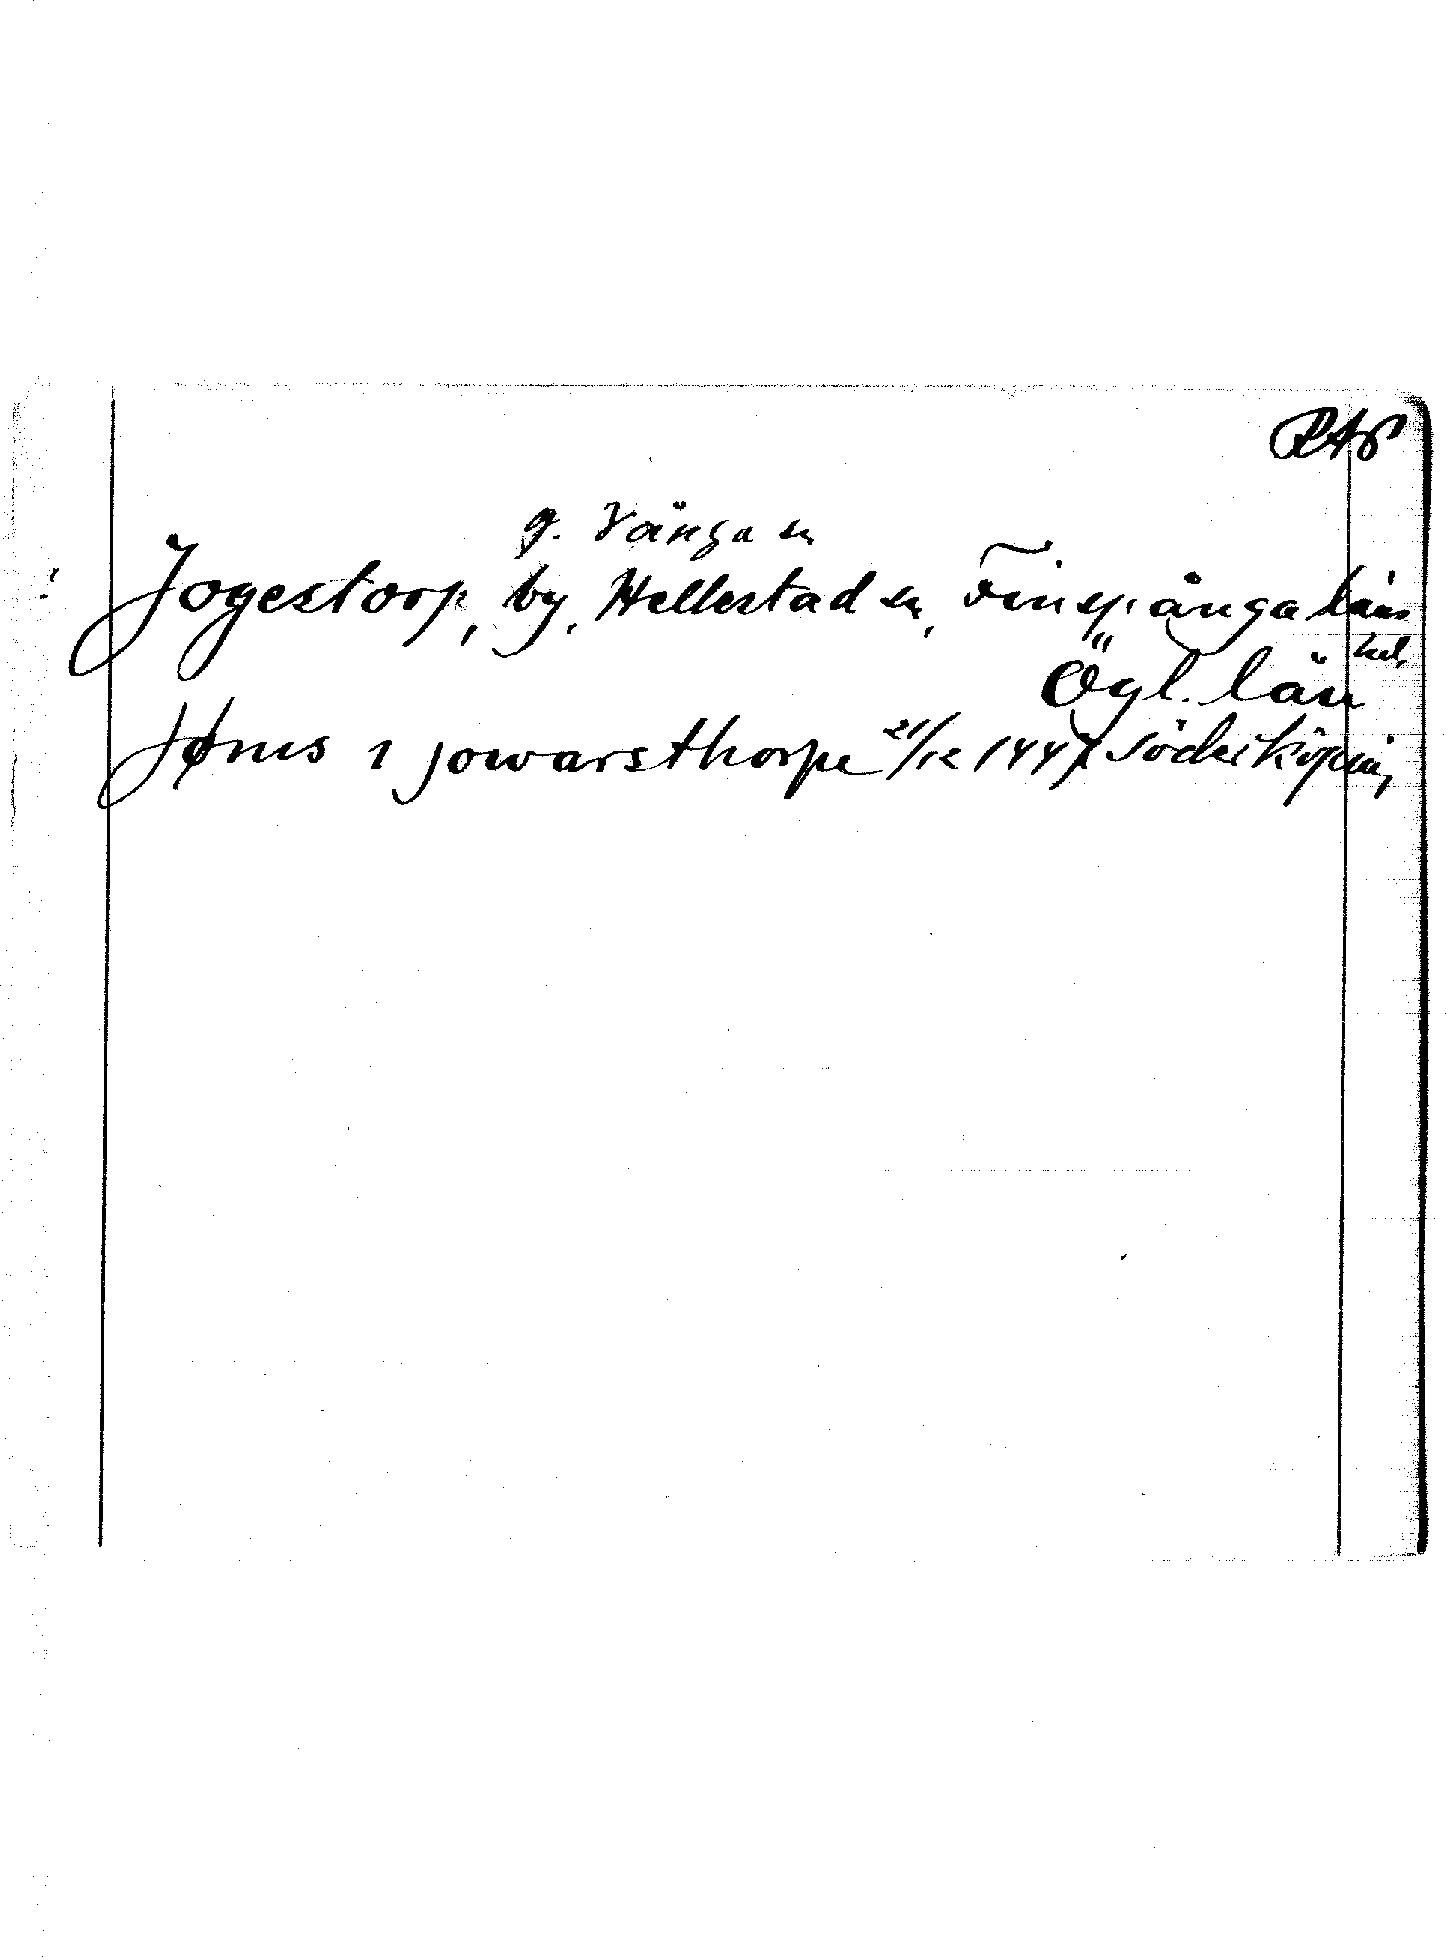 RAP
g. Vånga sn
Jogestorp, by, Hellestad sn, Finspånga läns
hd,
Ögl. län
Jøns i jowarsthorpe 21/12 1447 Söderköping